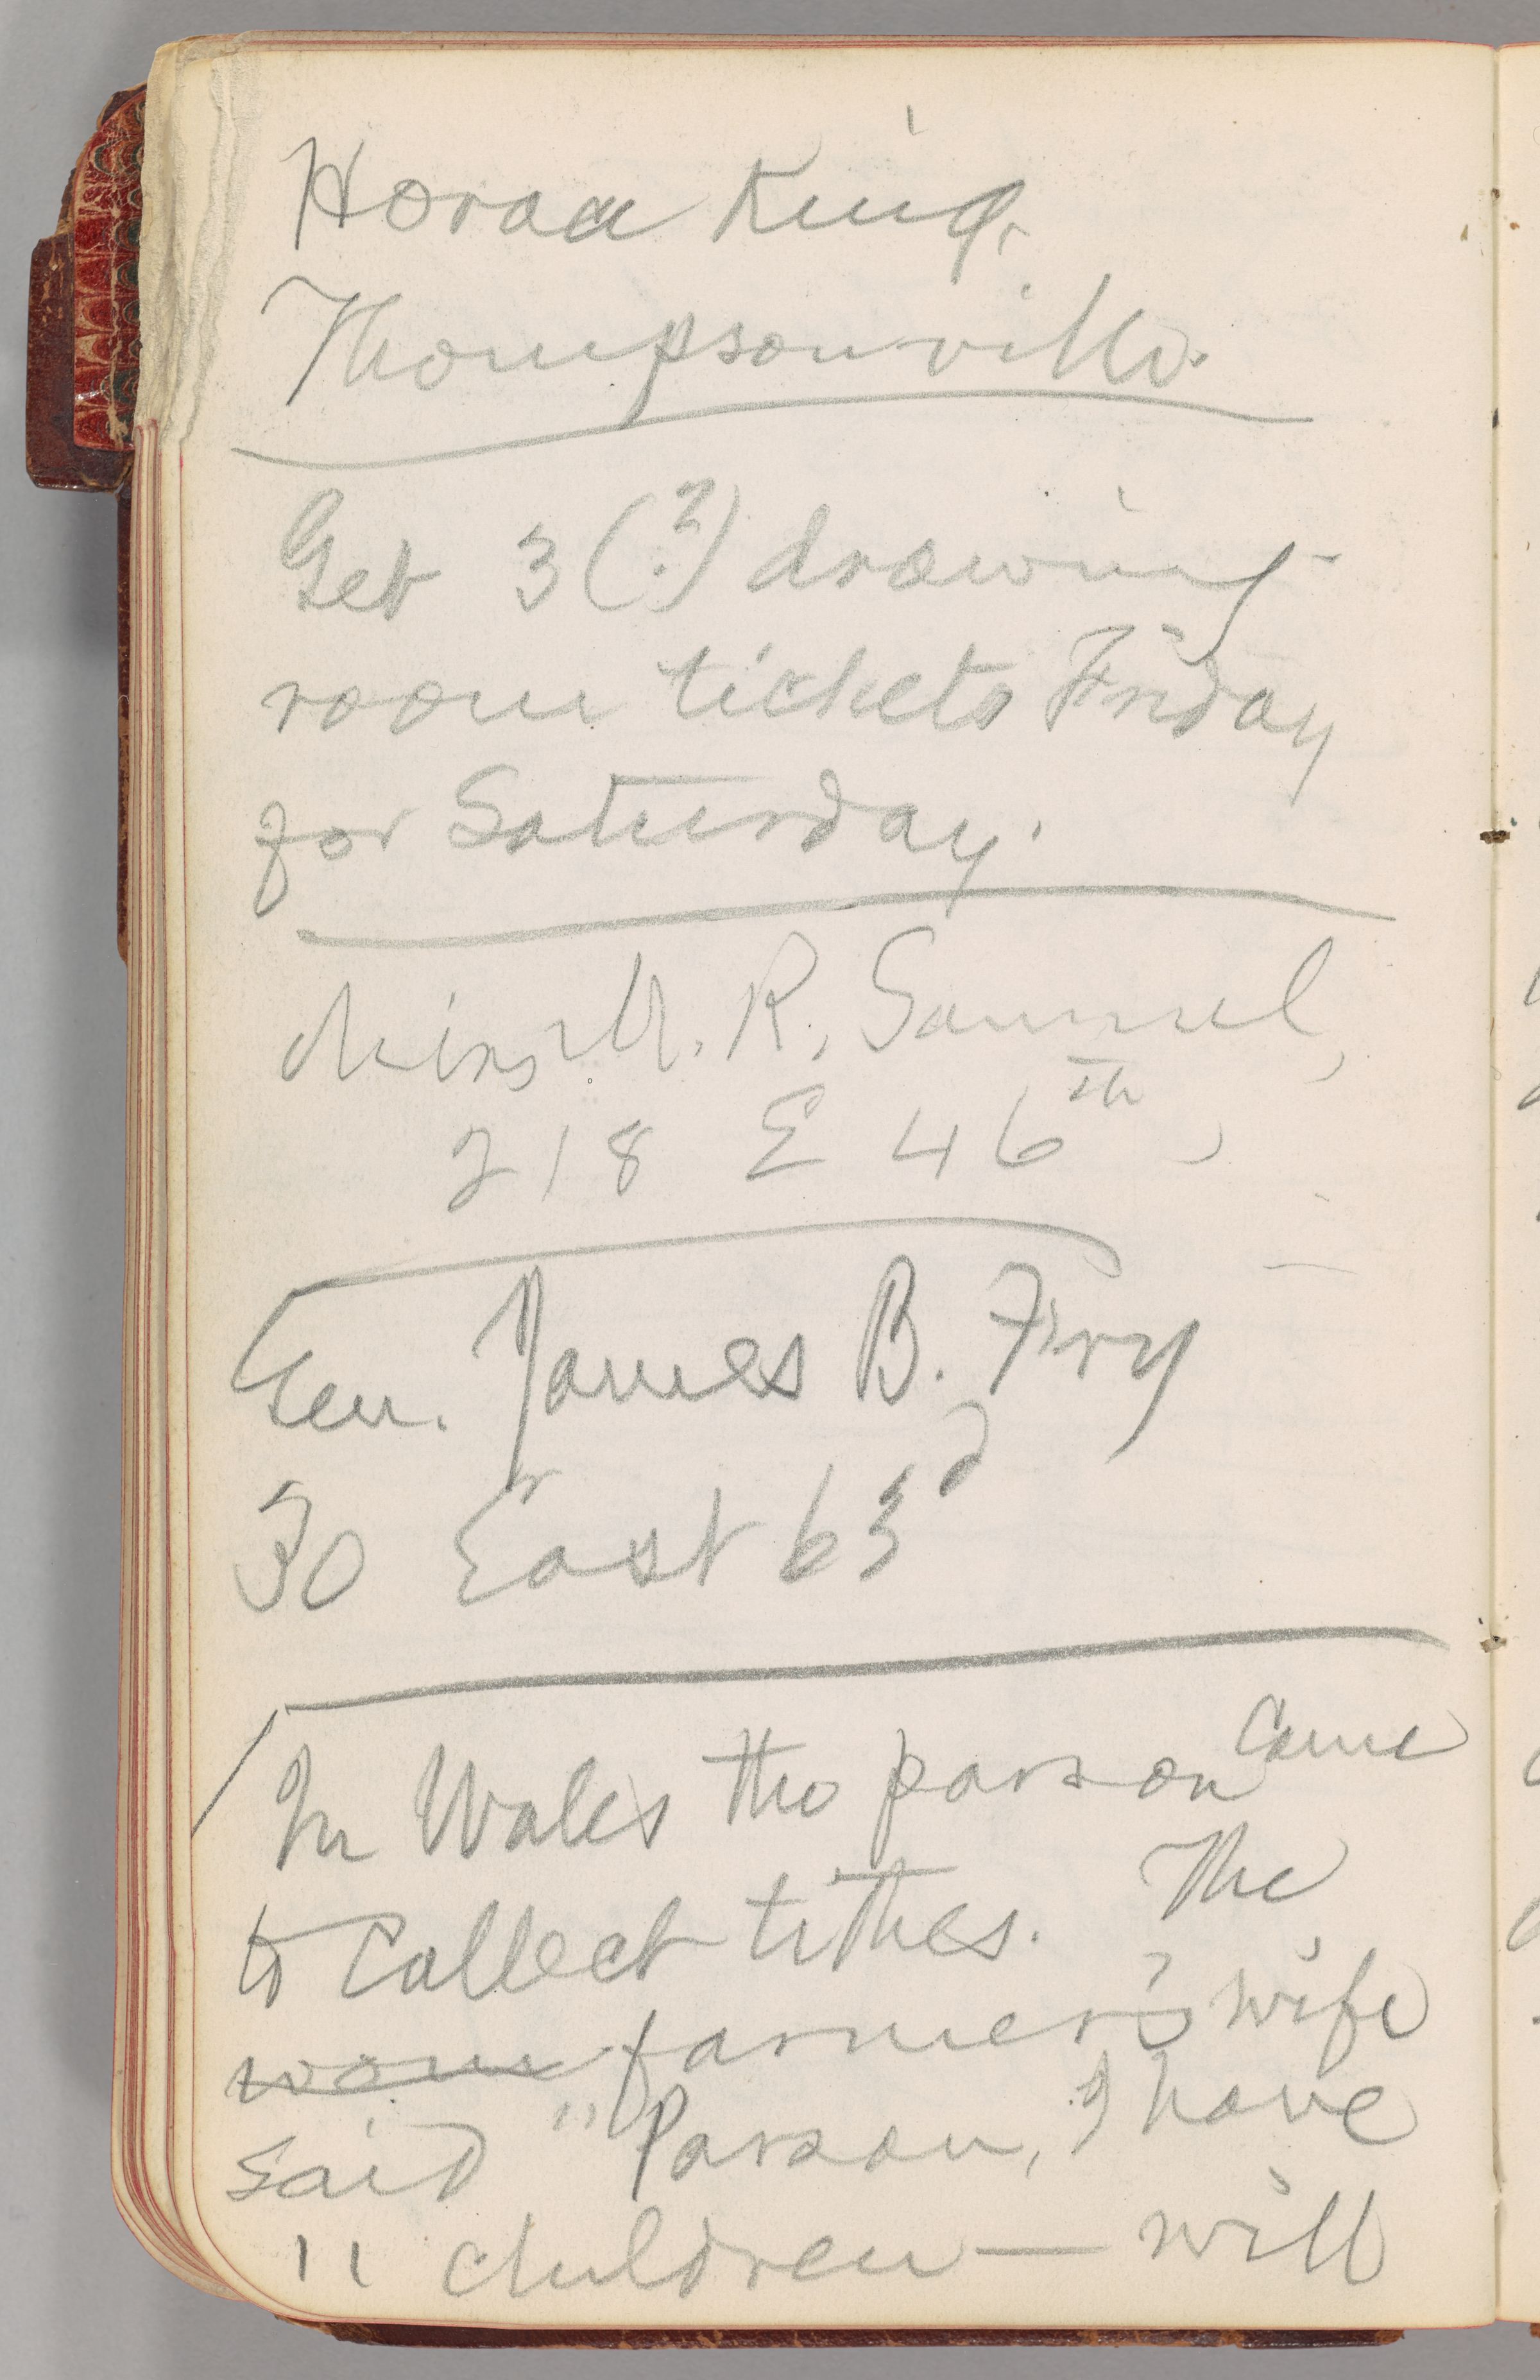 Horace King,
Thompsonville.
Get 3 (?) drawing-
room tickets Friday
for Saturday.
Miss M. R. Samuel,
218 E 46th,
Gen. James B. Fry
30 East 63d
In Wales the parson came
to collect tithes. The
wom farmer's wife
said "Parson, I have
11 children — will